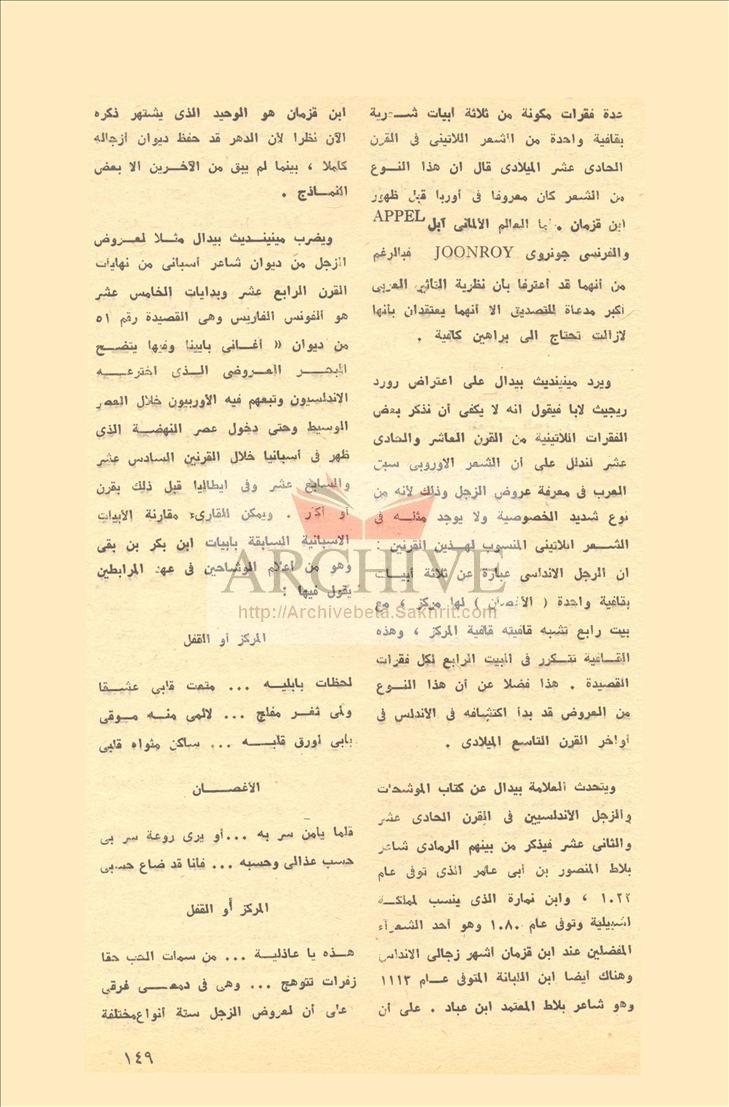 عدة فقرات مكونة من ثلاثة أبيات شـعرية
بقافية واحدة من الشعر اللاتينى فى القرن
الحادى عشر الميلادى قال ان هذا النـوع
من الشعر كان معروفا فى أوربا قبل ظهور
ابن قزمان . أما العالم الألمانى آبل APPEL
والفرنسى جونروى JOONROY فبالرغم
من أنهما قد أعترفا بأن نظرية التأثير العربى
أكبر مدعاة للتصديق الا أنهما يعتقدان بأنها
لازالت تحتاج الى براهين كافية .
ويرد مينينديث بيدال على اعتراض رورد
ريجيث لابا فيقول انه لا يكفى أن نذكر بعض
الفقرات اللاتينية من القرن العاشر والحادى
عشر لندلل على أن الشعر الاوروبى سبق
العرب فى معرفة عروض الزجل وذلك لأنه من
نوع شديد الخصوصية ولا يوجد مثله فى
الشـعر اللاتينى المنسوب لهـذين القرنين :
ان الزجل الاندلسى عبارة عن ثلاثة أبيـات
بقافية واحدة ( الأغصان ) لها مركز ، مع
بيت رابع تشبه قافيته قافية المركز ، وهذه
القـافية تتـكرر فى البيت الرابع لكل فقرات
القصيدة . هذا فضلا عن أن هذا النـوع
من العروض قد بدأ اكتشافه فى الاندلس فى
أواخر القرن التاسع الميلادى .
ويتحدث العلامة بيدال عن كتاب الموشحات
والزجل الاندلسيين فى القرن الحادى عشر
والثانى عشر فيذكر من بينهم الرمادى شاعر
بلاط المنصور بن أبى عامر الذى توفى عام
١٠٢٢ ، وابن نمارة الذى ينسب لمملكـة
اشبيلية وتوفى عام ١٠٨٠ وهو أحد الشعراء
المفضلين عند ابن قزمان أشهر زجالى الاندلس
وهناك أيضا ابن اللبانة المتوفى عـام ١١١٣
وهو شاعر بلاط المعتمد ابن عباد . على أن
ابن قزمان هو الوحيد الذى يشتهر ذكره
الآن نظرا لأن الدهر قد حفظ ديوان أزجاله
كاملا ، بينما لم يبق من الآخرين الا بعض
النمـاذج .
ويضرب مينينـديث بيدال مثـلا لعـروض
الزجل من ديوان شاعر أسبانى من نهايات
القرن الرابع عشر وبدايات الخامس عشر
هو ألفونس الفاريس وهى القصيدة رقم ٥١
من ديوان « أغـانى بايينا وفيها يتضـح
البحـر العـروضى الـذى اخترعـه
الاندلسيون وتبعهم فيه الأوربيون خلال العصر
الوسيط وحتى دخول عصر النهضـة الذى
ظهر فى أسبانيا خلال القرنين السادس عشر
والسابع عشر وفى ايطاليا قبل ذلك بقرن
أو أكثر . ويمكن للقارىء مقارنة الأبيات
الاسبانية السابقة بأبيات ابن بكر بن بقى
وهو من أعلام الوشاحين فى عهد المرابطين
يقول فيها :
المركز أو القفل
لحظات بابليـه ... متعت قلبى عشـقا
ولى ثغـر مفلج ... لائمى منـه مـوقى
بأبى أورق قلبـه ... ساكن مثواه قلبى
الأغصـــان
قلما يأمن سر به ...أو يرى روعة سر بى
حسب عذالى وحسبه ... فأنا قد ضاع حسبى
المركز أو القفل
هـذه يا عاذليـة ... من سمات الحب حقا
زفرات تتوهج ... وهى فى دمعـى فرقى
على أن لعروض الزجل ستة أنواع مختلفة
١٤٩
ARCHIVE
http://Archivebeta.Sakhrit.com